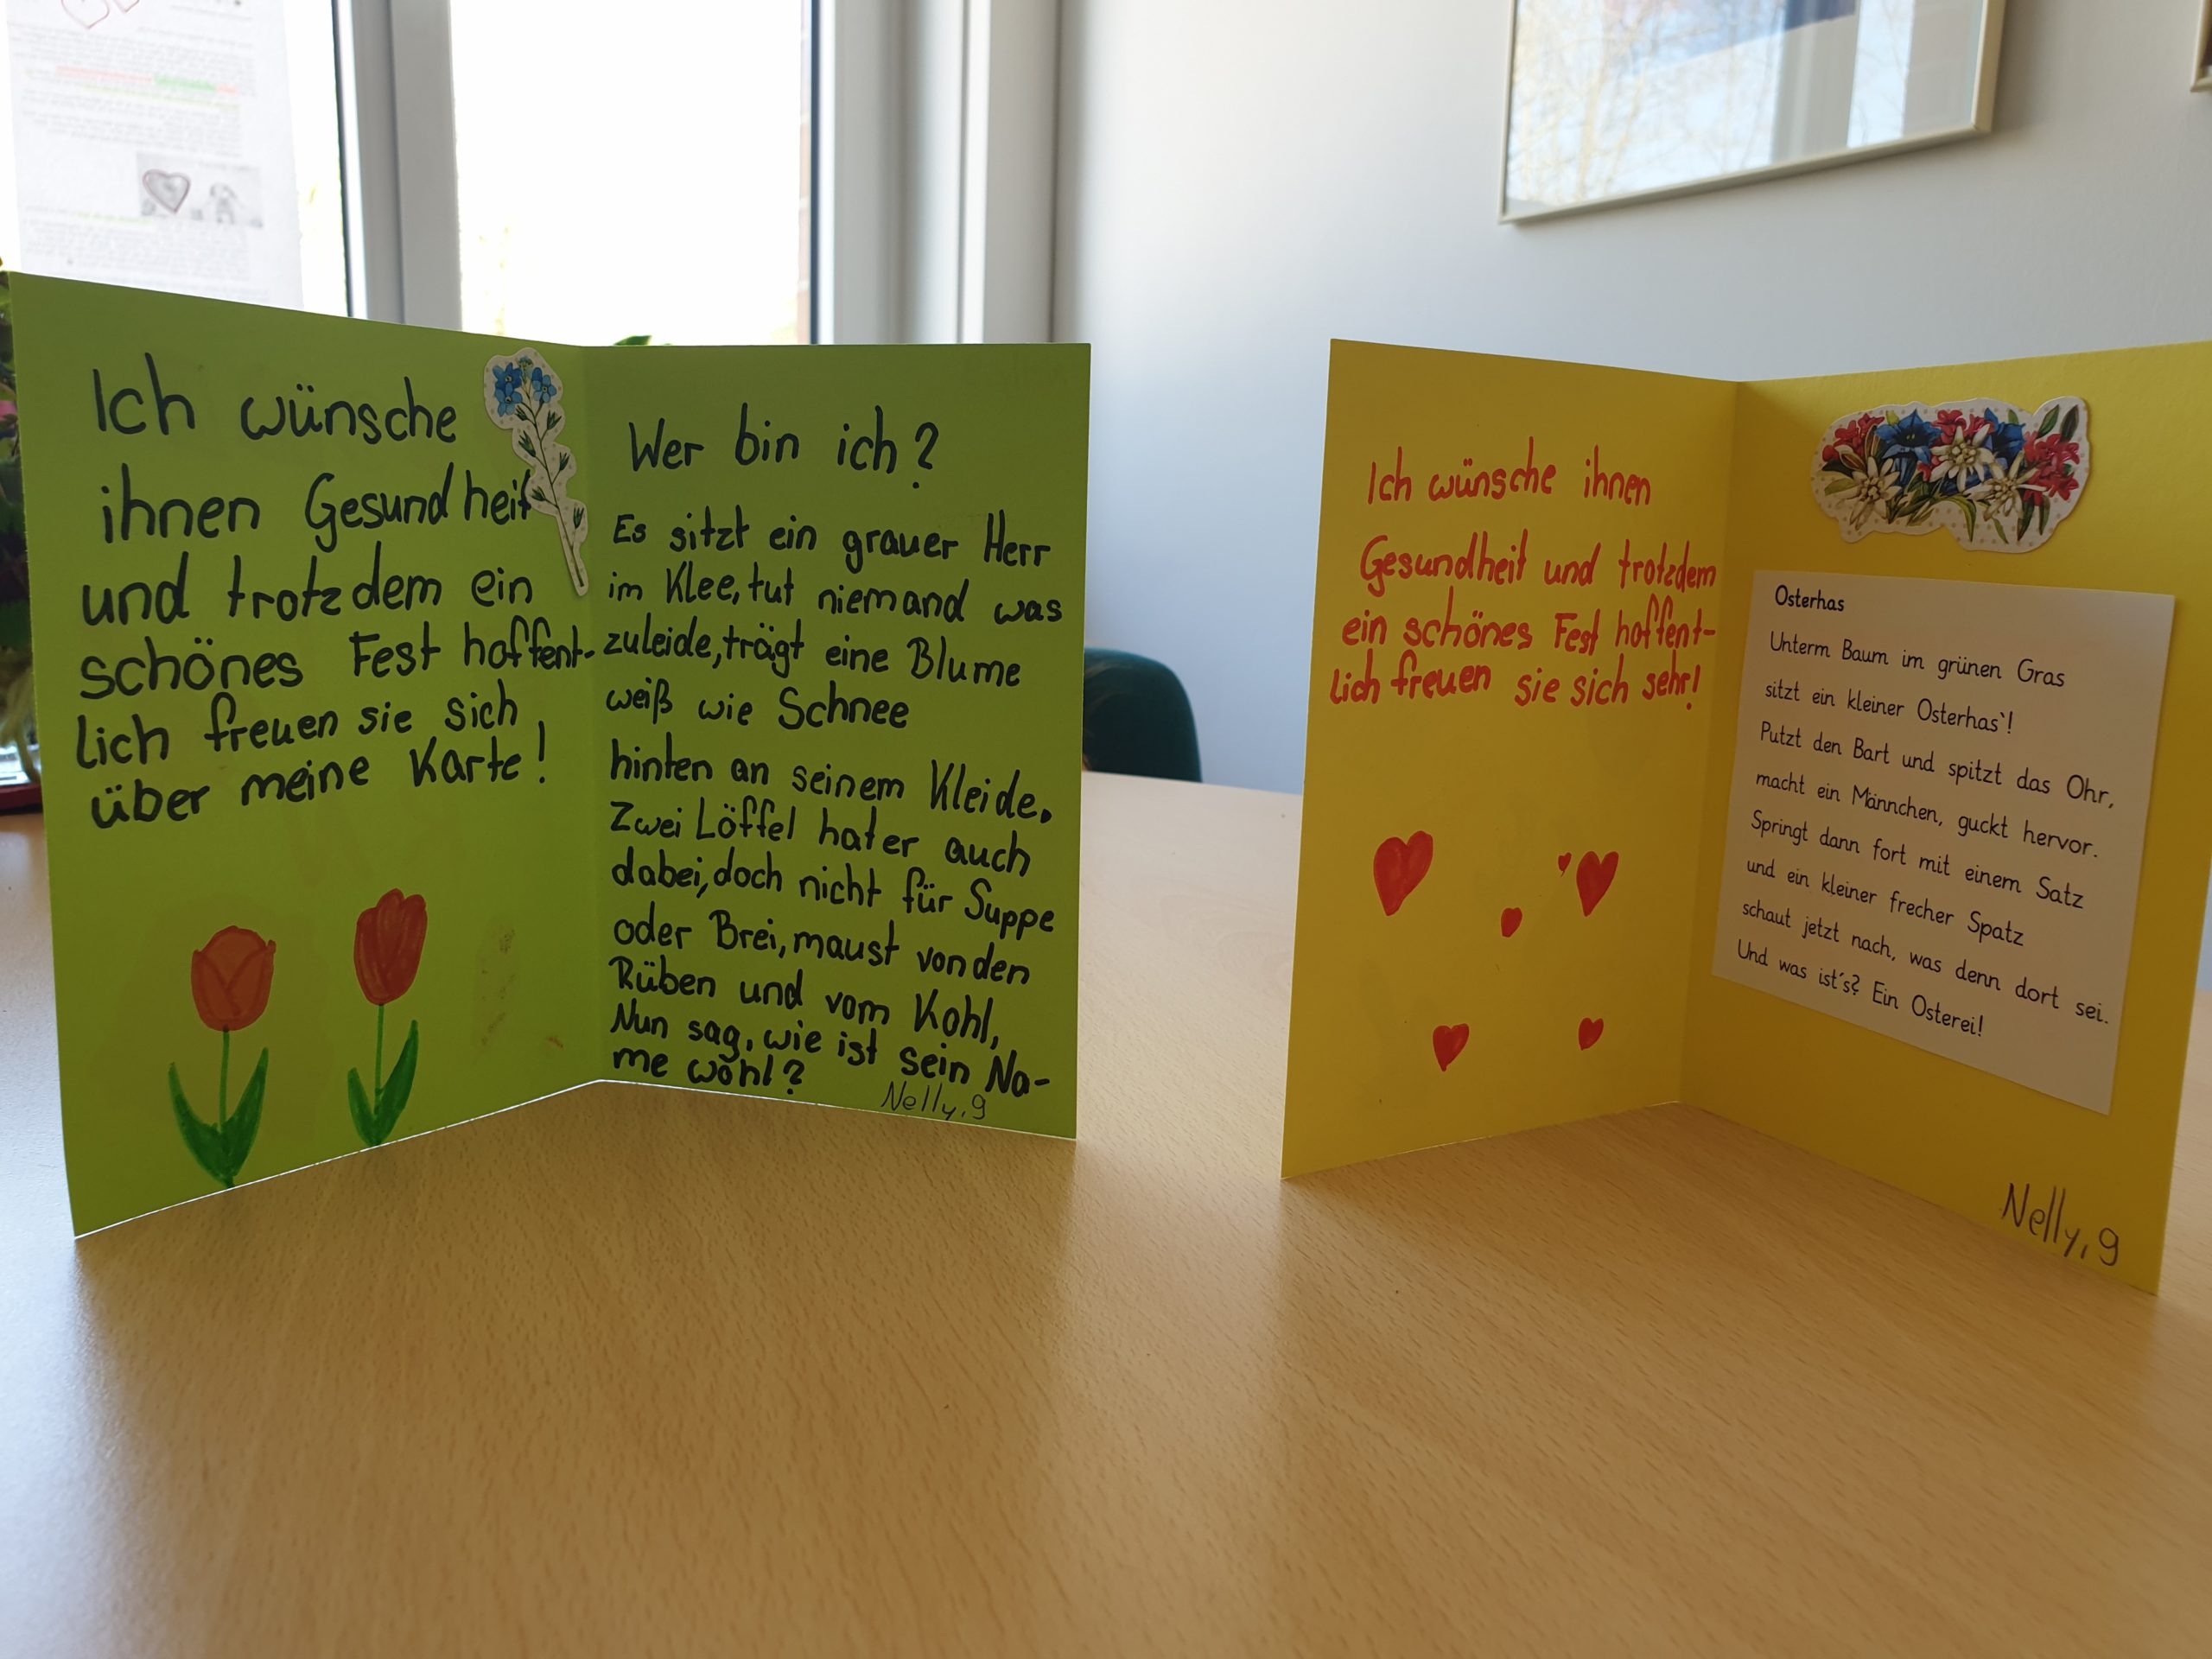 Ich wünsche
ihnen Gesundheit
und trotzdem ein
schönes Fest hoffent-
lich freuen sie sich
über meine Karte!
Wer bin ich?
Es sitzt ein grauer Herr
im Klee, tut niemand was
zuleide, trägt eine Blume
weiß wie Schnee
hinten an seinem Kleide.
Zwei Löffel hat er auch
dabei, doch nicht für Suppe
oder Brei, maust von den
Rüben und vom Kohl,
Nun sag, wie ist sein Na-
me wohl?
Nelly, 9
Ich wünsche ihnen
Gesundheit und trotzdem
ein schönes Fest hoffent-
lich freuen sie sich sehr!
Osterhas
Unterm Baum im grünen Gras
sitzt ein kleiner Osterhas`!
Putzt den Bart und spitzt das Ohr,
macht ein Männchen, guckt hervor.
Springt dann fort mit einem Satz
und ein kleiner frecher Spatz
schaut jetzt nach, was denn dort sei.
Und was ist´s? Ein Osterei!
Nelly, 9